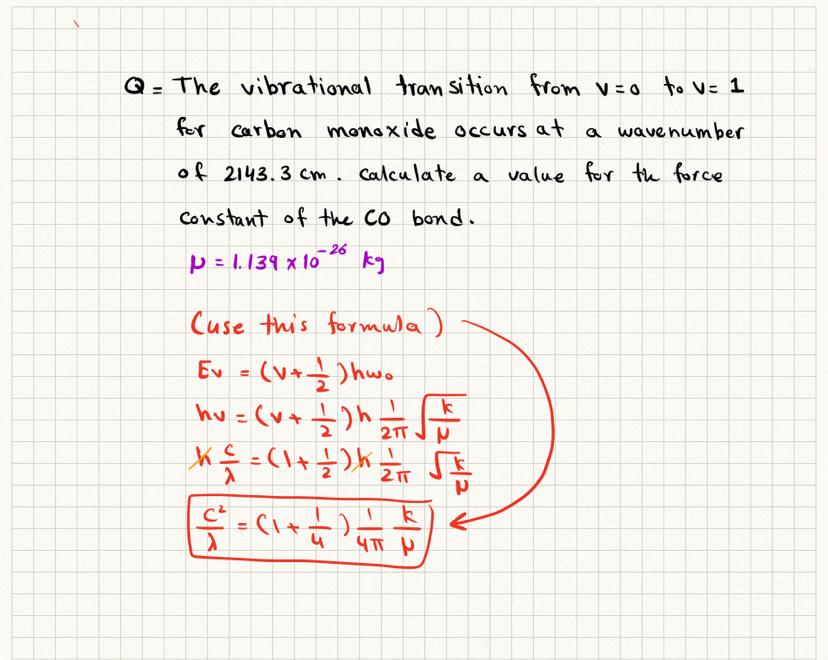 Q = The vibrational transition from v=0 to v= 1
for carbon monoxide occurs at a wavenumber
of 2143.3 cm. calculate a value for th force
constant of the CO bond.
μ = 1.139 x 10⁻²⁶ kg
(use this formula)
Ev = (v + 1/2) hω₀
hν = (v + 1/2) h 1/2π √(k/μ)
h c/λ = (1 + 1/2) h 1/2π √(k/μ)
c²/λ = (1 + 1/4) 1/4π k/μ